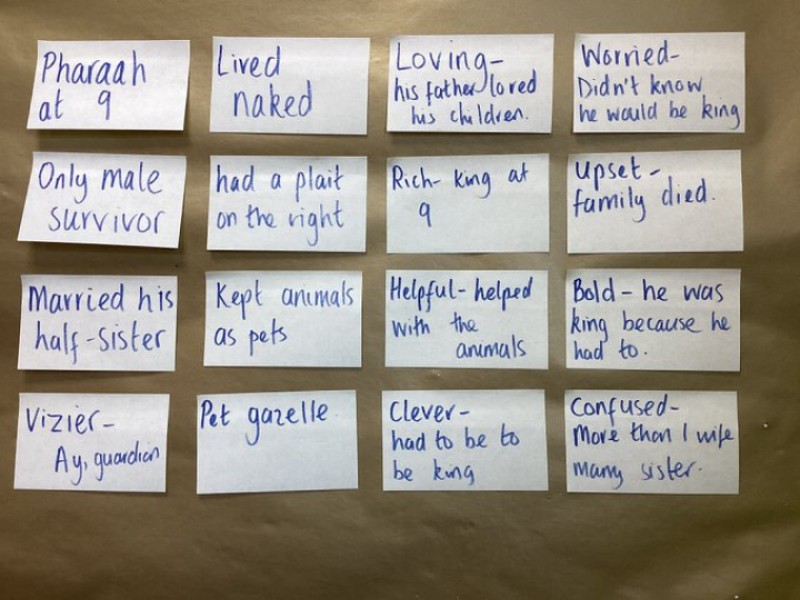 Pharaah
at 9
Lived
naked
Loving-
his father loved
his children.
Worried-
Didn't know
he would be king
Only male
survivor
had a plait
on the right
Rich- king at
9
Upset-
family died.
Married his
half-sister
Kept animals
as pets
Helpful- helped
with the
animals
Bold- he was
king because he
had to.
Vizier-
Ay, guardian
Pet gazelle
Clever-
had to be to
be king
Confused-
More than 1 wife
marry sister.